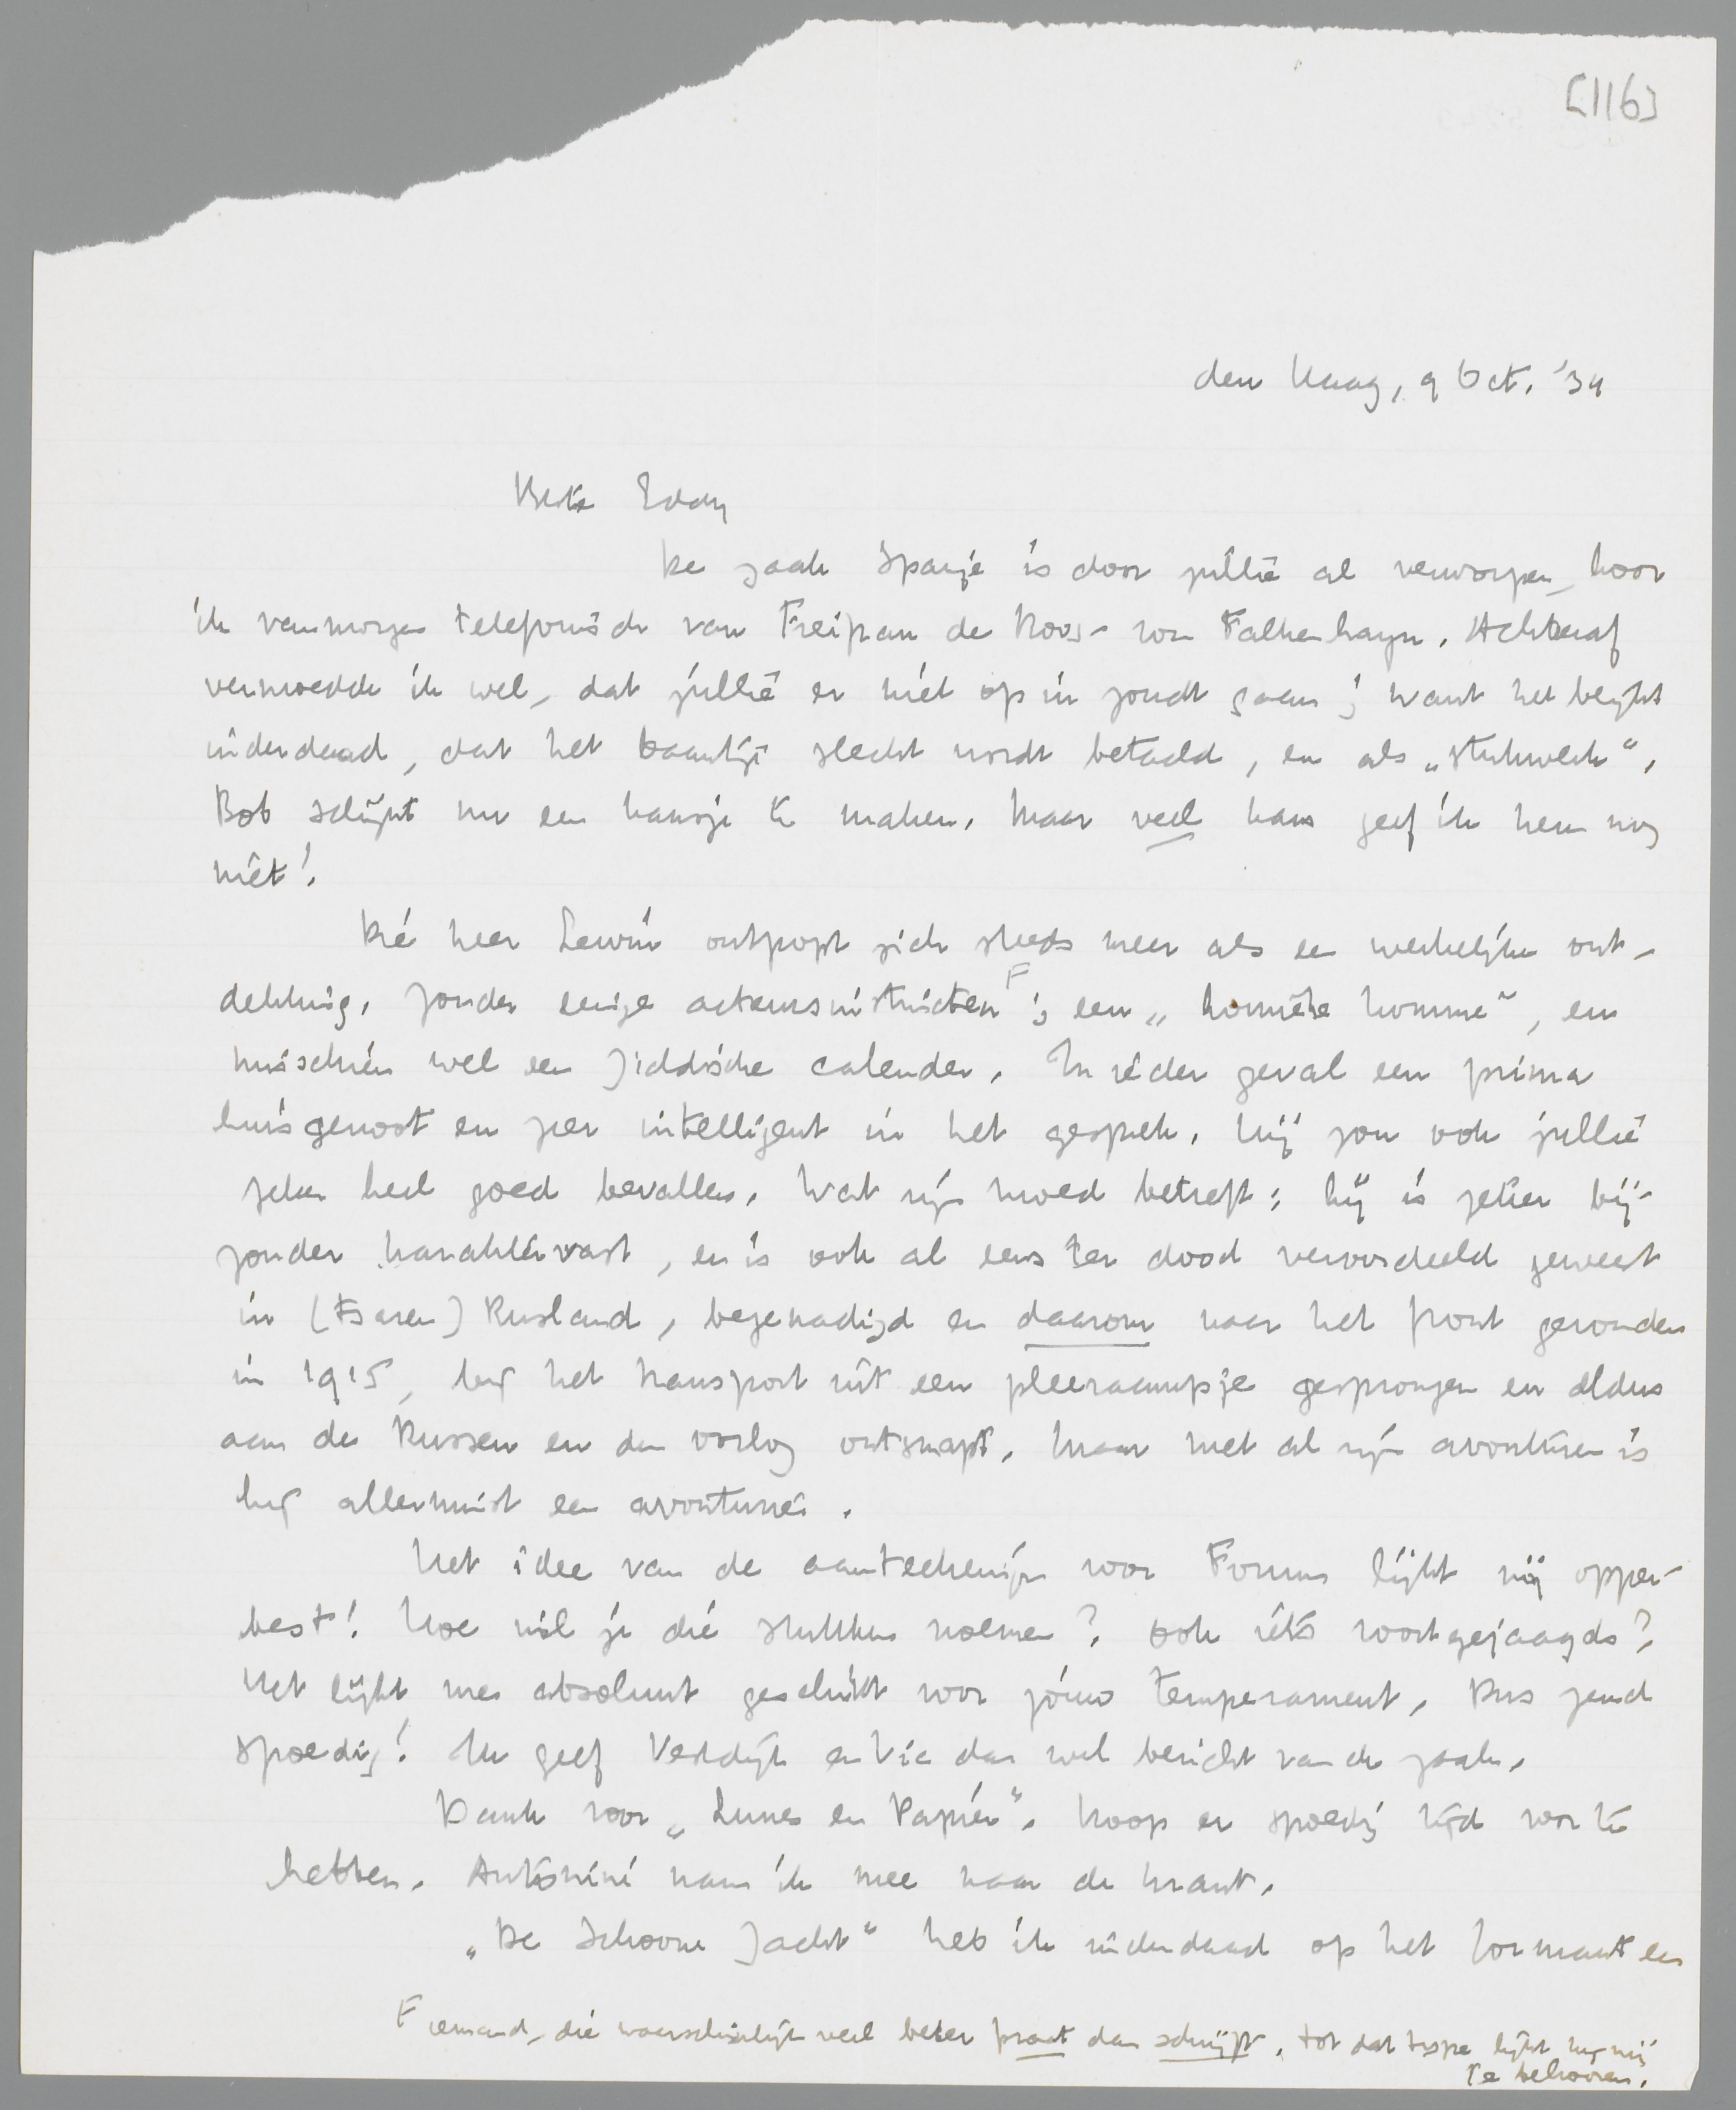 [116]
den Haag, 9 Oct. '34
Beste Eddy
De zaak Spanje is door jullie al verworpen, hoor
ik vanmorgen telefonisch van Freifrau de Roos - von Falkenhayn. Achteraf
vermoedde ik wel, dat jullie er niet op in zoudt gaan; want het blijkt
inderdaad, dat het baantje slecht wordt betaald, en als „stukwerk".
Bob schijnt nu een kansje te maken. Maar veel kans geef ik hem nog
niet!
Die heer Lewin ontpopt zich steeds meer als een werkelijke ont-
dekking. Zonder eenige acteursinstincten F; een „honnête homme", en
misschien wel een Jiddische calender. In ieder geval een prima
huisgenoot en zeer intelligent in het gesprek. Hij zou ook jullie
zeker heel goed bevallen. Wat zijn moed betreft: hij is zeker bij-
zonder karaktervast, en is ook al eens ter dood veroordeeld geweest
in (Tsaren) Rusland, begenadigd en daarom naar het front gezonden
in 1915, bij het transport uit een pleeraampje gesprongen en aldus
aan de Russen en den oorlog ontsnapt. Maar met al zijn avonturen is
hij allerminst een avonturier.
Het idee van de aanteekeningen voor Forum lijkt mij opper-
best! Hoe wil je die stukken noemen? Ook iets voortgejaagds?
Het lijkt me absoluut geschikt voor jóuw temperament. Dus zend
spoedig! Ik geef Vestdijk en Vic dan wel bericht van de zaak.
Dank voor „Lunes en Papier". Hoop er spoedig tijd voor te
hebben. Antonini nam ik mee naar de krant.
„De Schoone Jacht" heb ik inderdaad op het formaat en
F iemand, die waarschijnlijk veel beter praat dan schrijft. Tot dat type lijkt hij mij
te behooren.